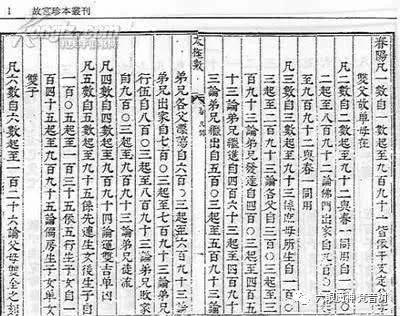 1 故宮珍本叢刊
春陽凡一數自一數起至九百九十一皆依干支定
雙父故單母在
凡二數自二數起至九十二與春一同用自一百
二起至八百九十二論佛門出家自九百〇二起
至九百九十二與春一同用
凡三數自三數起至九十三係庶母所生自一百〇
三起至二百九十三論各父自三百〇三起至
百九十三論弟兄發達自四百〇三起至四百五
十三論弟兄繼過自四百六十三起至四百九十
三論弟兄繼出自五百〇三起至五百九十三論
太極數
弟兄各父漂蕩自六百〇三起至六百九十三論
弟兄出家自七百〇三起至七百九十三論弟兄
行伍自八百〇三起至八百九十三論弟兄敗家
自九百〇三起至九百九十三論弟兄徒流
凡四數自四數起至九百九十四論運雙吉單凶
凡五數自五數起至九十五係先連生女後生子自
一百〇五起至一百三十五依五行生子女自一
百四十五起至九百九十五論偏房生子女單女
雙子
凡六數自六數起至一百二十六論父母雙全之刻